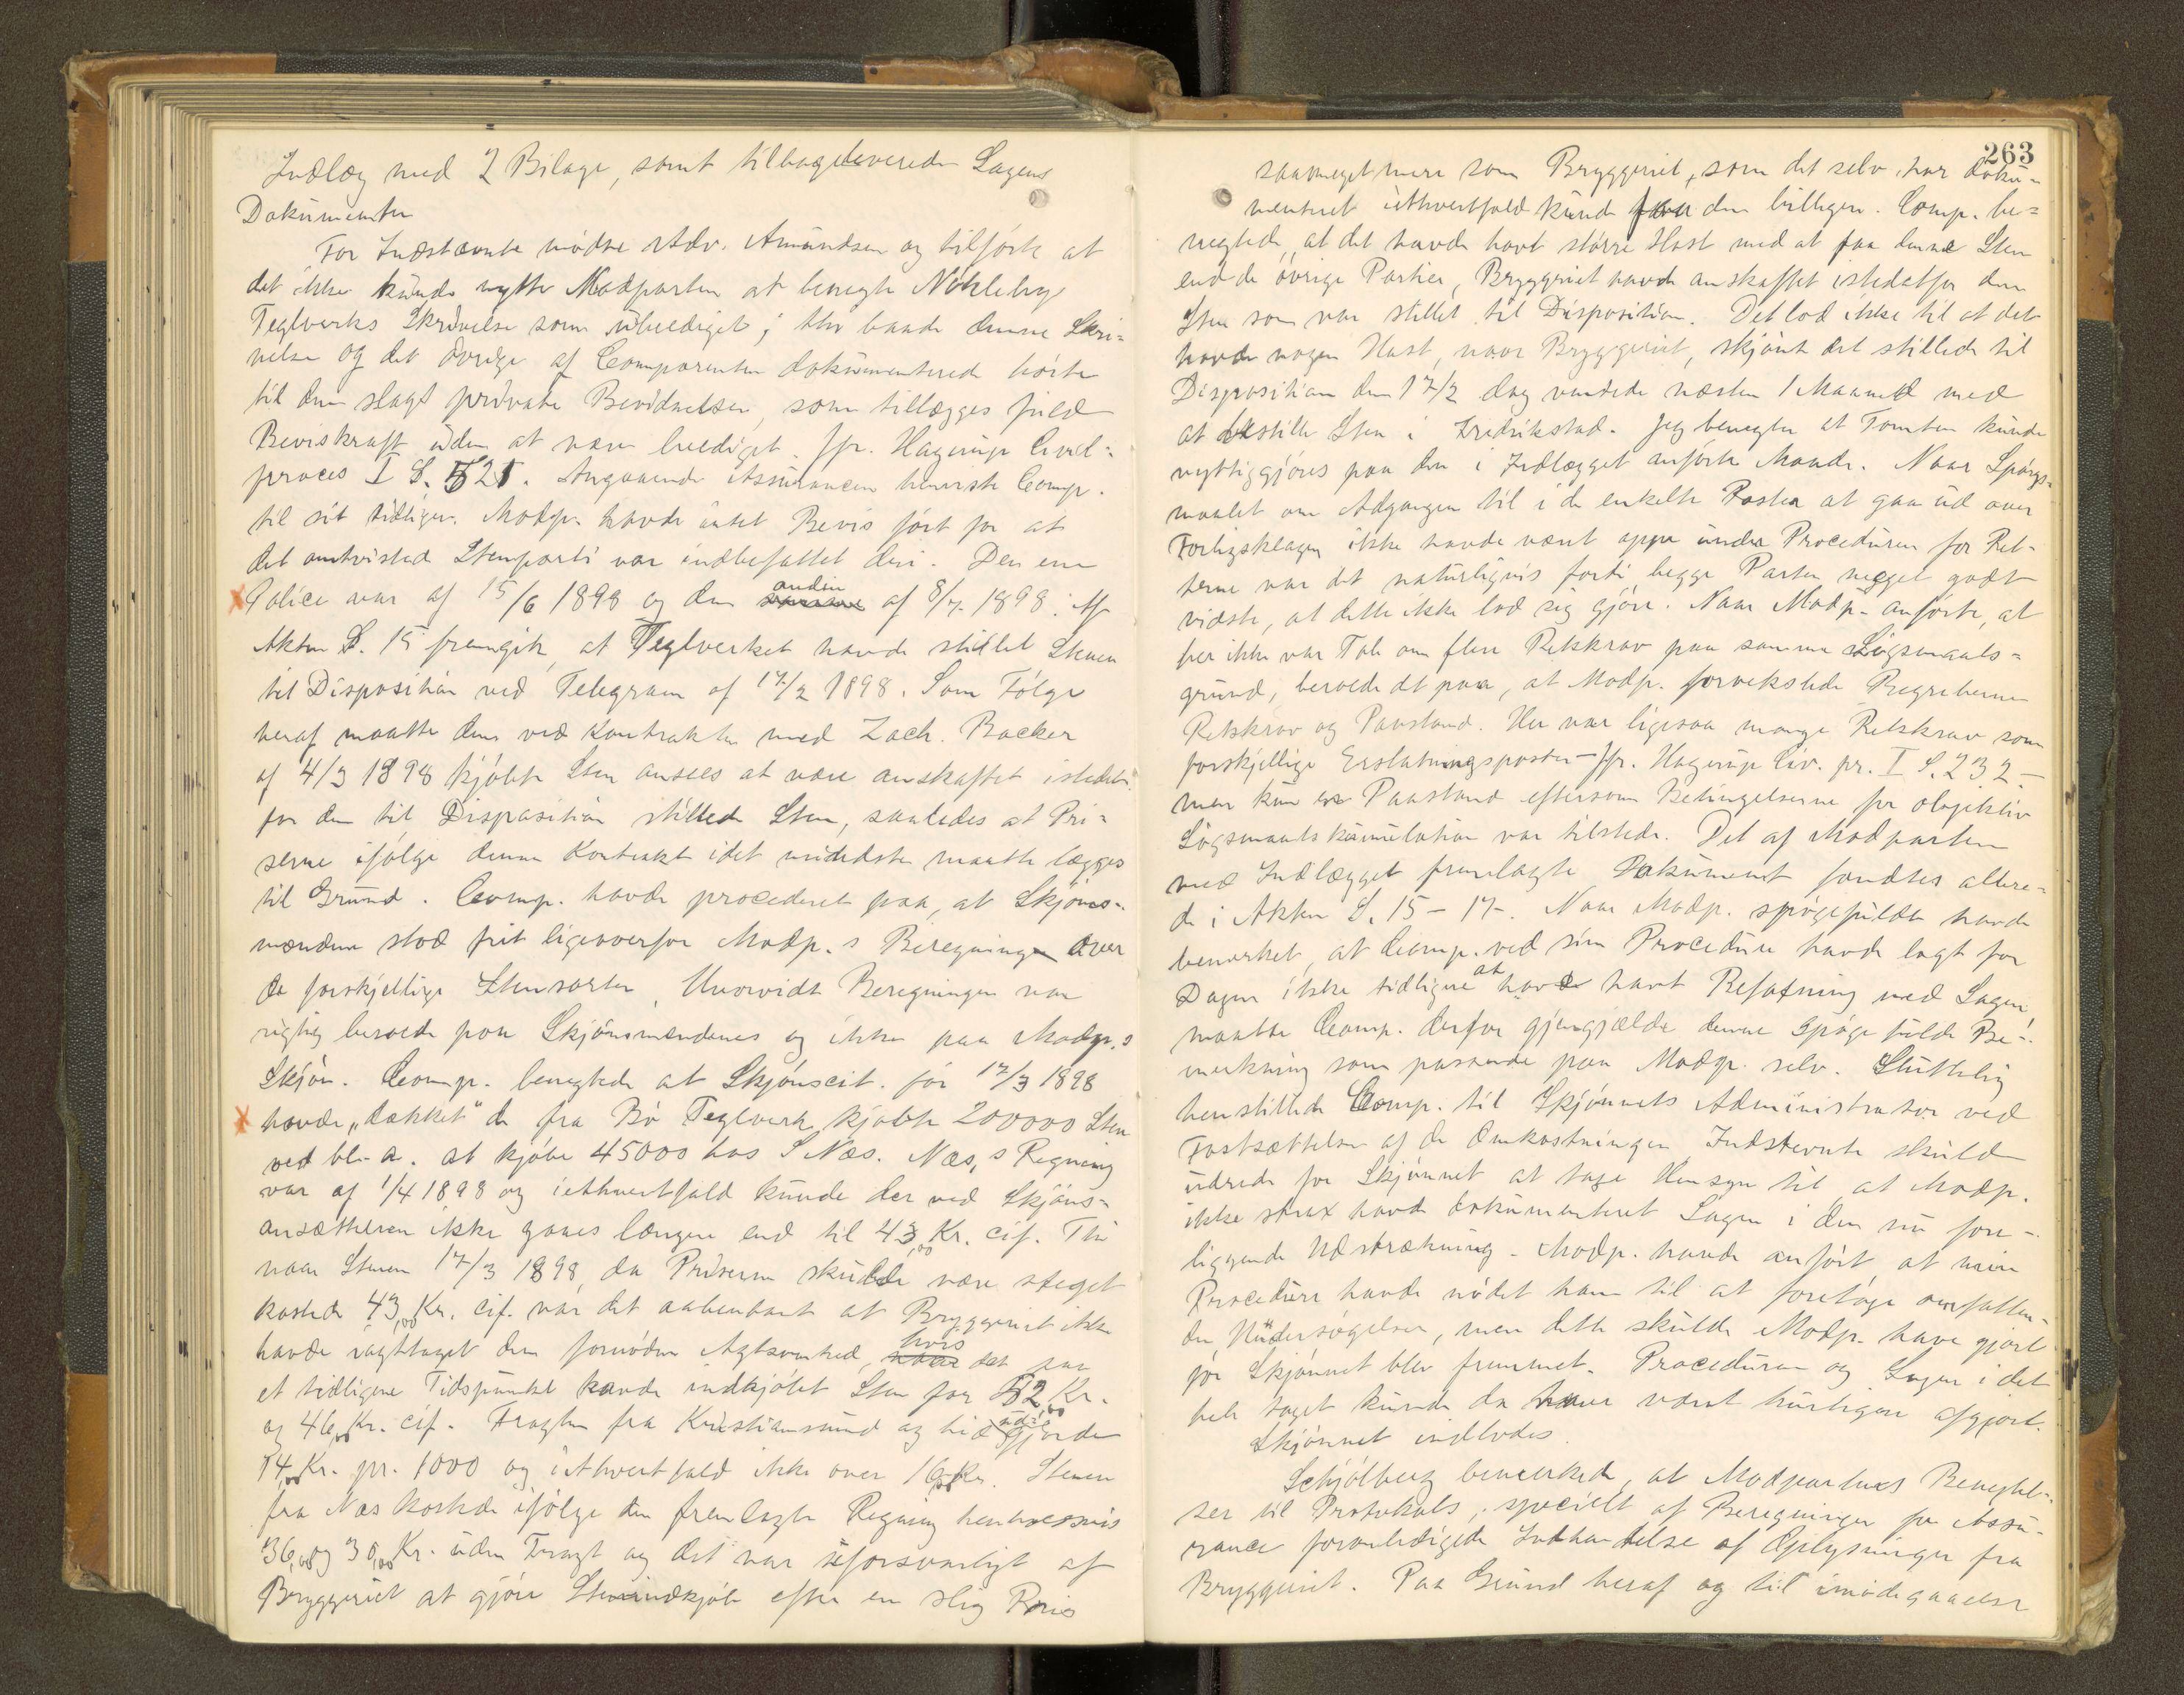 Indlæg med 2 Bilage, samt tilbageleverede Sagens
Dokumenter
For Indstævnte mødte Adv. Amundsen og tilførte at
det ikke kunde nytte Modparten at benegte Nøkleby
Teglverks Skrivelse som ubeediget; thi baade denne Skri-
velse og det øvrige af Comparenten dokumenterede hørte
til den slags private Bevidnelser, som tillægges fuld
Beviskraft uden at være beediget. Jfr. Hagerup Civil-
proces I S. 521. Angaaende Assurancen henviste Comp.
til sit tidligere. Modp. havde intet Bevis ført for at
det omtvisted Stenparti var indbefattet deri. Den ene
Police var af 15/6 1898 og den anden af 8/7 1898. Af
Akten S. 15 fremgik, at Teglverket havde stillet Stenen
til Disposition ved Telegram af 17/2 1898. Som Følge
heraf maatte den ved Kontrakten med Zach. Backer
af 4/3 1898 kjøbte Sten ansees at være anskaffet istedet-
for den til Disposition stillede Sten, saaledes at Pri-
serne ifølge denne Kontrakt idet mindste maatte lægges
til Grund. Comp. havde procederet paa, at Skjøns-
mændene stod frit ligeoverfor Modp.s Beregninger over
de forskjellige Stensorter. Hvorvidt Beregningen var
rigtig beroede paa Skjønsmændenes og ikke paa Modp.s
Skjøn. Comp. benegtede at Skjønscit. før 17/3 1898
havde "dækket" de fra Bø Teglverk kjøbte 200000 Sten
ved bl. a. at kjøbe 45000 hos S Næs. Næs,s Regning
var af 1/4 1898 og iethvertfald kunde der ved Skjøns-
ansættelsen ikke gaaes længere end til 43,00 Kr. cif. Thi
naar Stenen 17/3 1898, da Priserne skulde være steget
kostede 43,00 Kr. cif. var det aabenbart at Bryggeriet ikke
havde iagttaget den fornødne Agtsomhed, hvis det paa
et tidligere Tidspunkt havde indkjøbt Sten for 52,00 Kr.
og 46,00 Kr. cif. Fragten fra Kristiansund og hid udgjorde
14,00 Kr. pr. 1000 og iethvertfald ikke over 16,00 Kr. Stenen
fra Næs kostede ifølge den fremlagte Regning henholdsvis
36,00 og 30,00 Kr. uden Fragt og det var uforsvarligt af
Bryggeriet at gjøre Stenindkjøb efter en slig Pris
263
saameget mere som Bryggeriet, som det selv har doku-
menteret iethvertfald kunde faaet den billigere. Comp. be-
negtede, at det havde havt større Hast med at faa denne Sten
end de øvrige Partier, Bryggeriet havde anskaffet istedetfor den
Sten som var stillet til Disposition. Det lod ikke til at det
havde nogen Hast, naar Bryggeriet, skjønt det stillede til
Disposition den 17/2 dog ventede næsten 1 Maaned med
at bestille Sten i Fredrikstad. Jeg benegter at Tomten kunde
nyttiggjøres paa den i Indlægget anførte Maade. Naar Spørgs-
maalet om Adgangen til i de enkelte Poster at gaa ud over
Forligsklagen ikke havde været oppe under Proceduren for Ret-
terne var det naturligvis fordi begge Parter meget godt
vidste, at dette ikke lod sig gjøre. Naar Modp. anførte, at
her ikke var Tale om flere Retskrav paa samme Søgsmaals-
grund, beroede det paa, at Modp. forvekslede Begreberne
Retskrav og Paastand. Her var ligesaa mange Retskrav som
forskjellige Erstatningsposter - Jfr. Hagerup Civ. pr. I S. 232 -
men kun en Paastand eftersom Betingelserne for objektiv
Søgsmaalskumulation var tilstede. Det af Modparten
med Indlægget fremlagte Dokument fandtes allere-
de i Akten S. 15 - 17. Naar Modp. spøgefuldt havde
bemerket, at Comp. ved sin Procedure havde lagt for
Dagen ikke tidligere at have havt Befatning med Sagen,
maatte Comp. derfor gjengjælde denne spøgefulde Be-
merkning som passende paa Modp. selv. Sluttelig
henstillede Comp. til Skjønnets Administrator ved
Fastsættelsen af de Omkostninger Indstevnte skulde
udrede for Skjønnet at tage Hensyn til, at Modp.
ikke strax havde dokumenteret Sagen i den nu fore-
liggende Udstrækning. Modp. havde anført at min
Procedure havde nødet ham til at foretage omfatten-
de Undersøgelser, men dette skulde Modp. have gjort
før Skjønnet blev fremmet. Proceduren og Sagen i det
hele taget kunde da have været hurtigere afgjort.
Skjønnet indlodes.
Schjølberg bemerkede, at Modpartens Benegtel-
ser til Protokols, specielt af Beregningen for Assu-
rance foranledigede Indhentelse af Oplysninger fra
Bryggeriet. Paa Grund heraf og til imødegaaelse